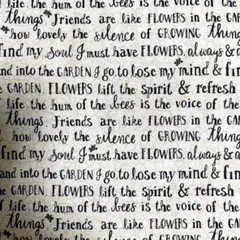 life. the hum of the bees is the voice of the
things Friends are like FLOWERS in the GA
how lovely the silence of GROWING things
find my Soul I must have FLOWERS, always & a
and into the GARDEN I go to lose my mind & fin
he GARDEN. FLOWERS lift the spirit & refresh
life. the hum of the bees is the voice of the
things Friends are like FLOWERS in the GA
how lovely the silence of GROWING thing
find my Soul I must have FLOWERS, always & a
and into the GARDEN I go to lose my mind & fin
he GARDEN. FLOWERS lift the spirit & refresh
life. the hum of the bees is the voice of the
things Friends are like FLOWERS in the GAR
how lovely the silence of GROWING